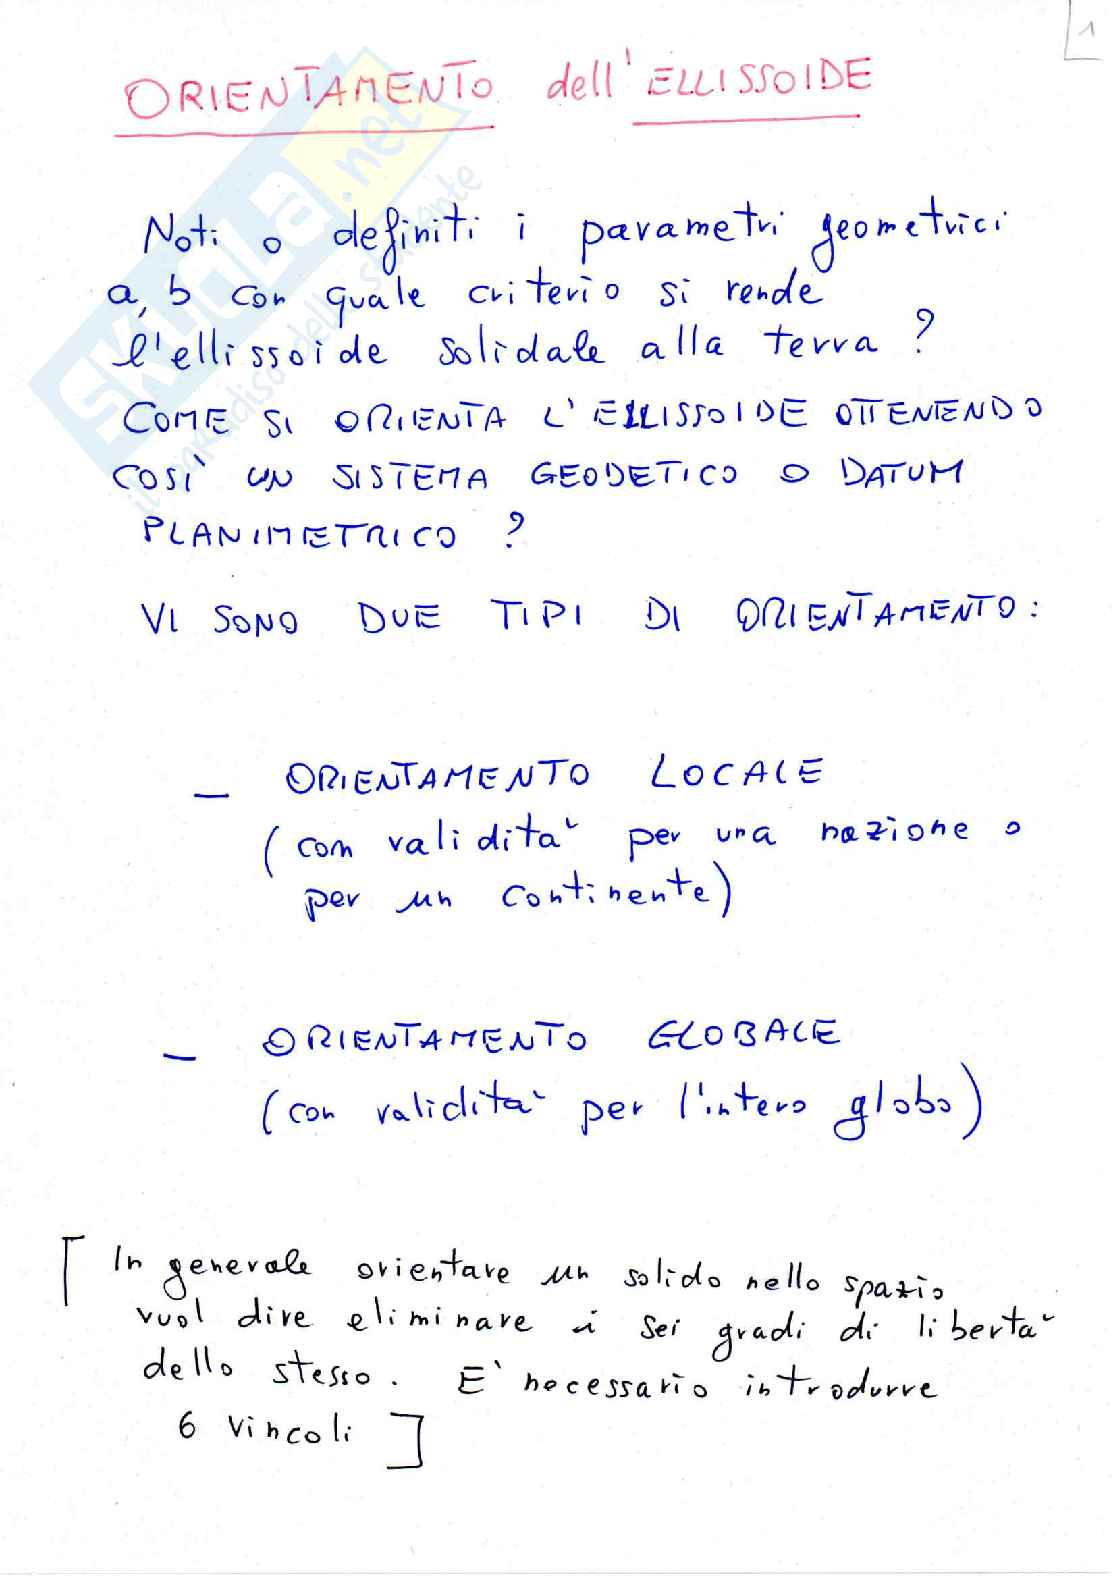 1
ORIENTAMENTO dell'ELLISSOIDE
Noti o definiti i parametri geometrici
a, b con quale criterio si rende
l'ellissoide solidale alla terra ?
COME SI ORIENTA L'ELLISSOIDE OTTENENDO
COSÌ UN SISTEMA GEODETICO O DATUM
PLANIMETRICO ?
VI SONO DUE TIPI DI ORIENTAMENTO:
– ORIENTAMENTO LOCALE
(con validità per una nazione o
per un continente)
– ORIENTAMENTO GLOBALE
(con validità per l'intero globo)
[ In generale orientare un solido nello spazio
vuol dire eliminare i sei gradi di libertà
dello stesso. E' necessario introdurre
6 vincoli ]
SKUOLA.net
il paradiso dello studente